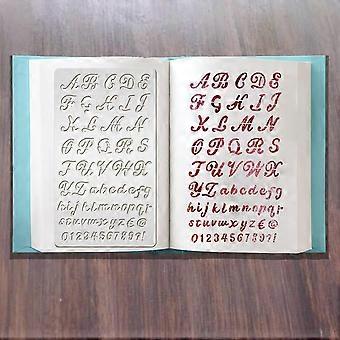 ABCDE
FGHIJ
KLMN
OPQRS
TUVWX
YZabcdefg
hijklmnopqr
stuvwxyz€@
0123456789?!
ABCDE
FGHIJ
KLMN
OPQRS
TUVWX
YZabcdefg
hijklmnopqr
stuvwxyz€@
0123456789?!